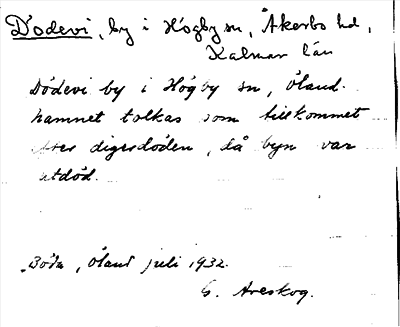 Dödevi, by i Högby sn, Åkerbo hd,
Kalmar län
Dödevi by i Högby sn, Öland.
Namnet tolkas som tillkommet
efter digerdöden, då byn var
utdöd.
Böda, Öland juli 1932.
G. Areskog.